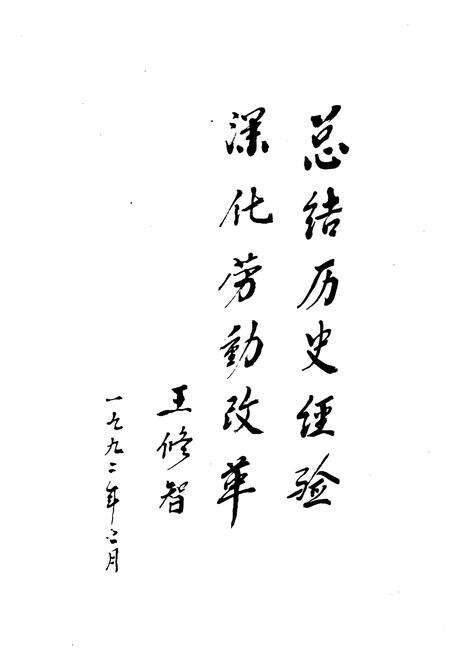 总结历史経验
深化劳動改革
王修智
一九九二年二月